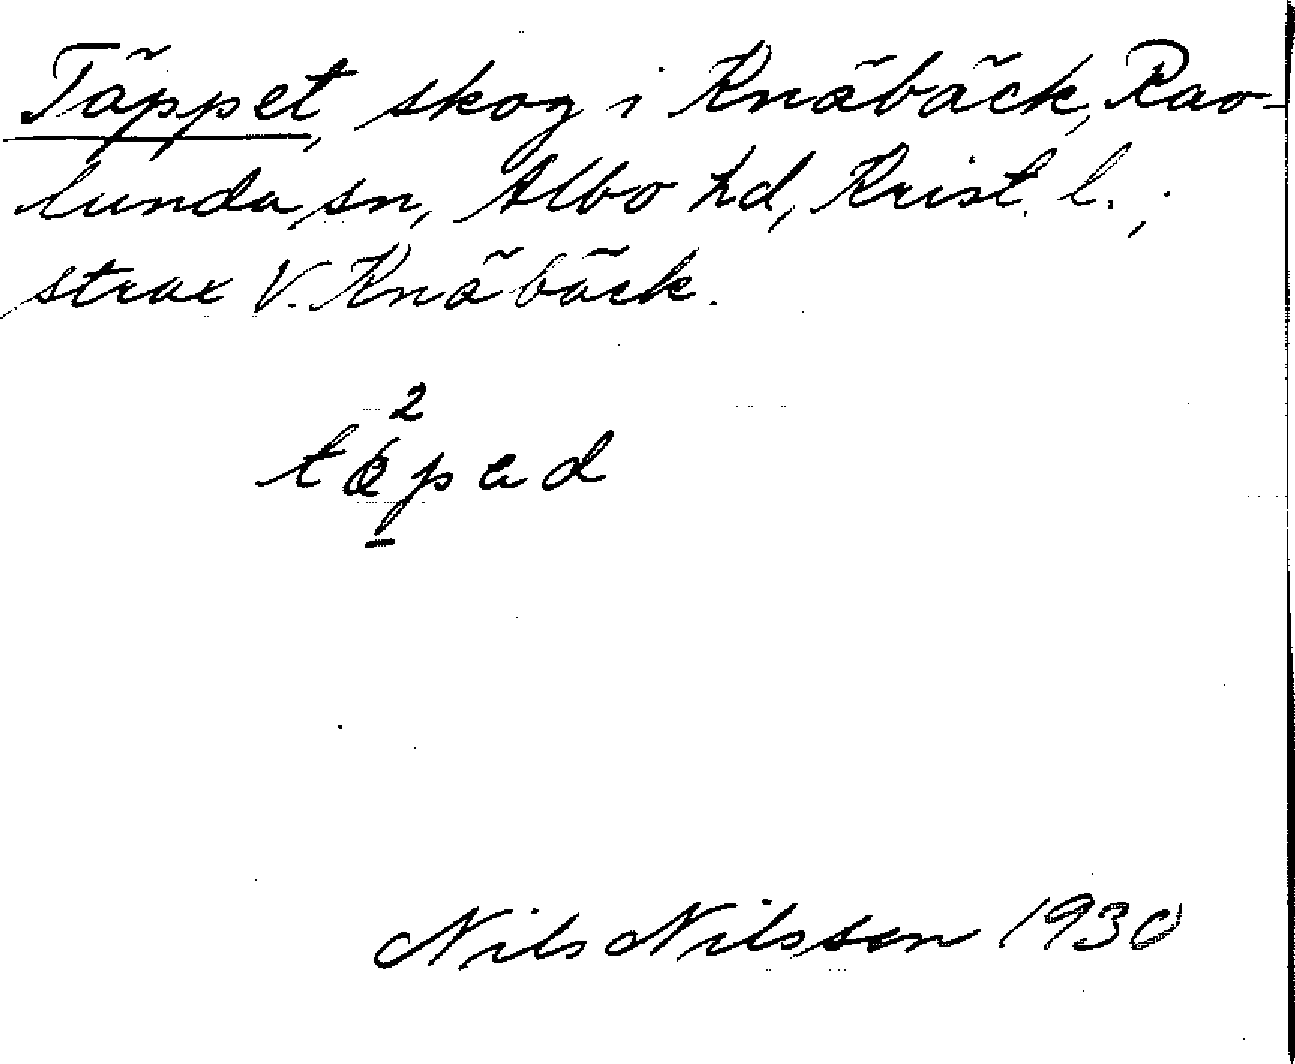 Täppet, skog i Knäbäck, Rav-
lunda sn, Albo hd, Krist. l.;
strax V. Knäbäck.
2
Nils Nilsson 1930